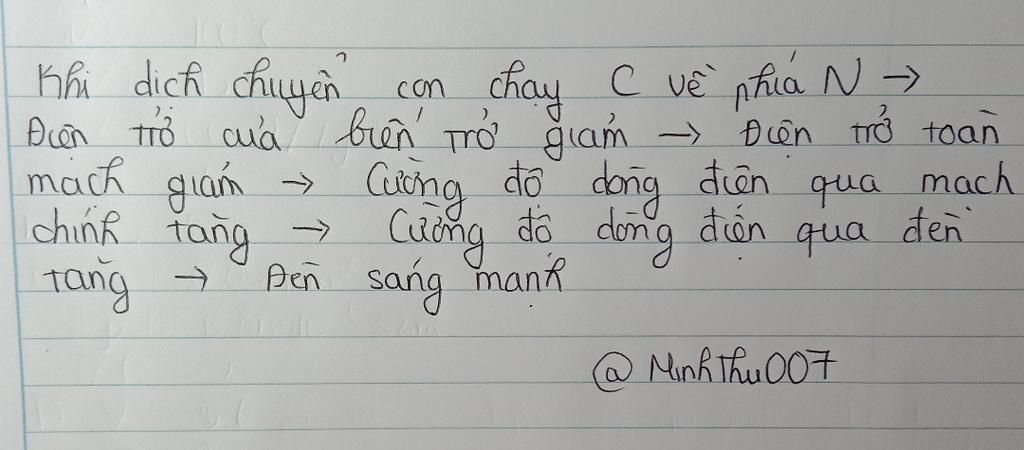 Khi dịch chuyển con chạy C về phía N →
Điện trở của biến trở giảm → Điện trở toàn
mạch giảm → Cường độ dòng điện qua mạch
chính tăng → Cường độ dòng điện qua đèn
tăng → Đèn sáng mạnh
@MinhThu007